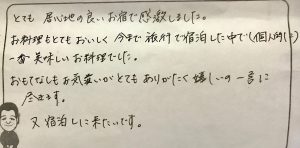 とても 居心地の良いお宿で感激しました。
お料理もとてもおいしく 今まで旅行で宿泊した中で(個人的に)
一番 美味しいお料理でした。
おもてなしもお気遣いがとてもありがたく嬉しいの一言に
尽きます。
又 宿泊しに来たいです。